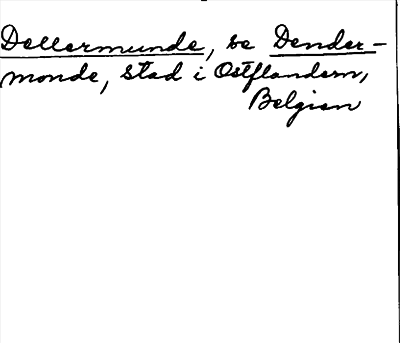 Dellermunde, se Dender-
monde, stad i Ostflandern,
Belgien